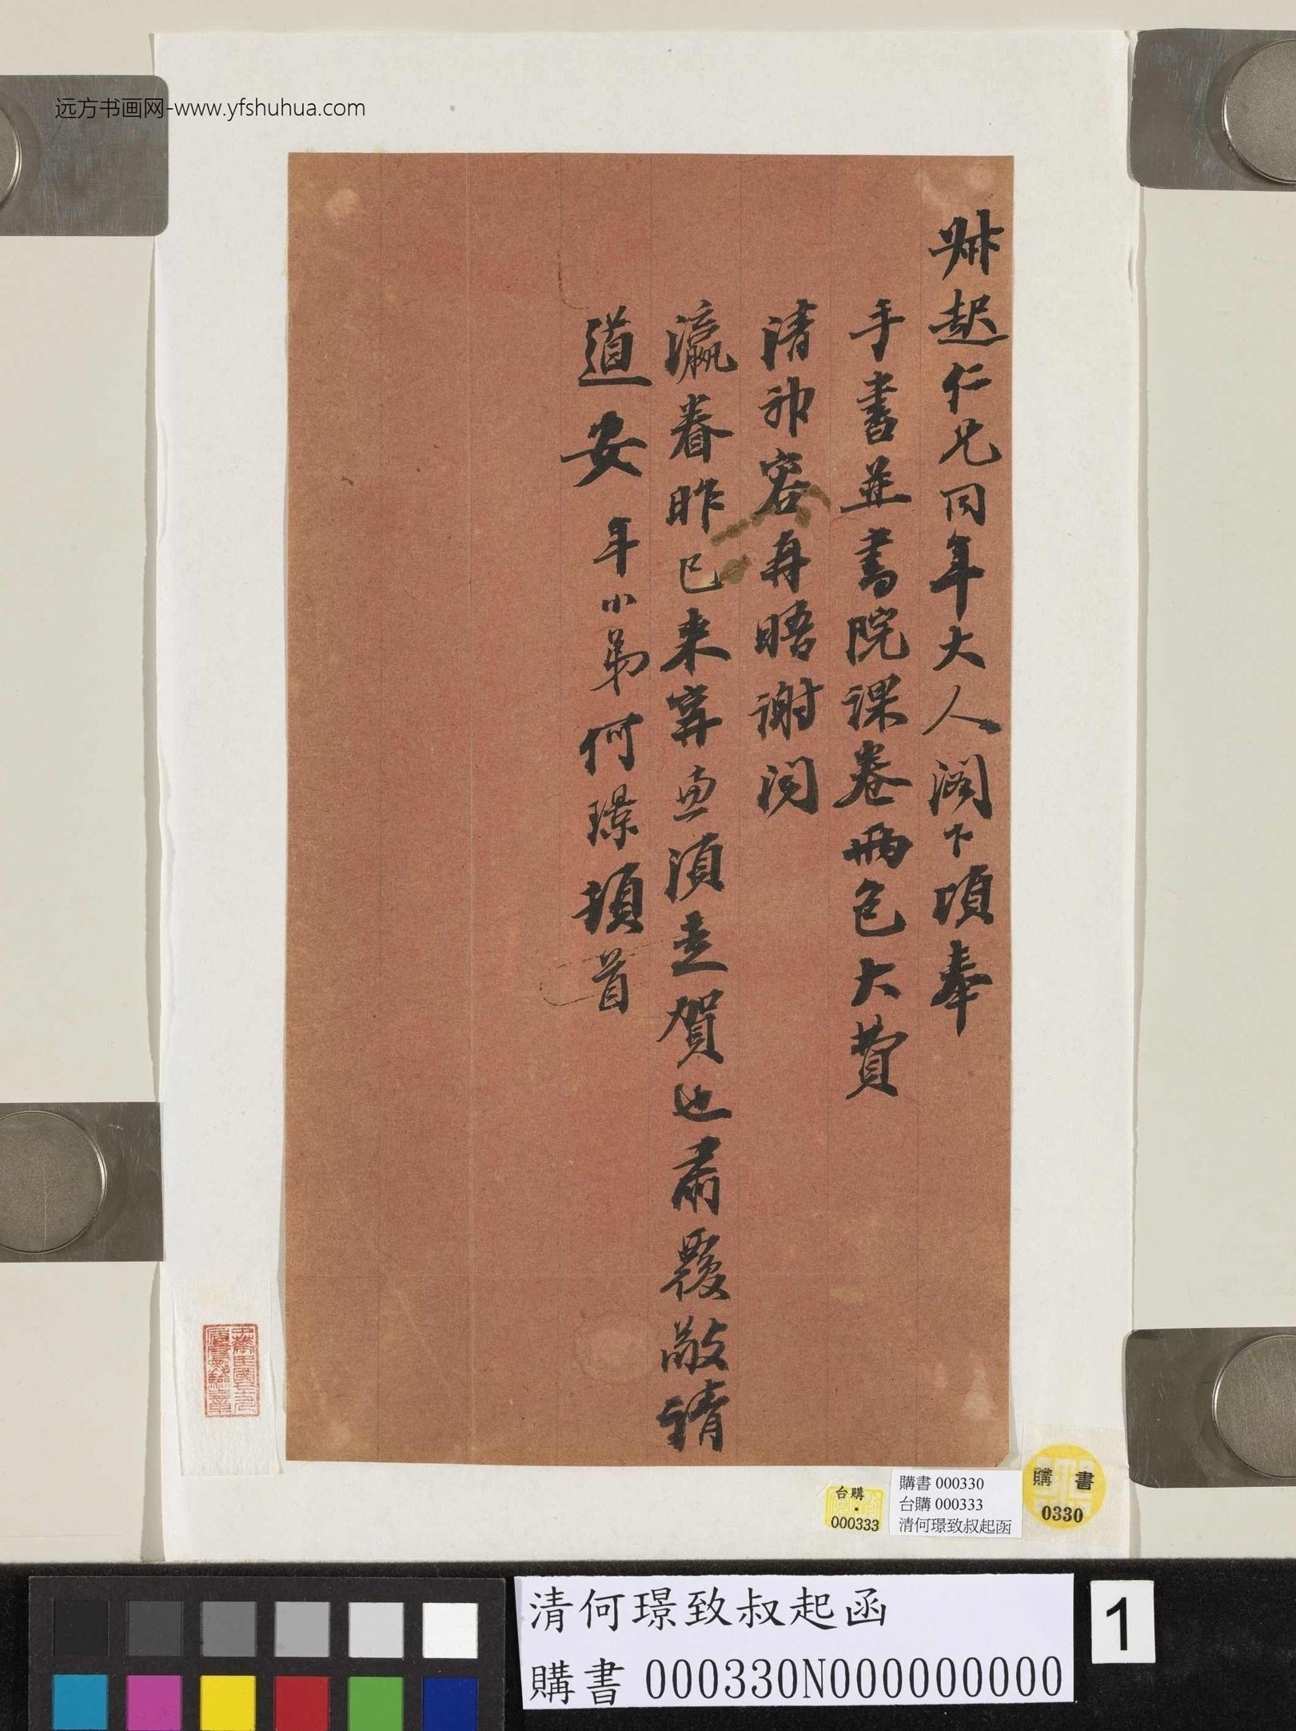 远方书画网-www.yfshuhua.com
叔起仁兄同年大人阁下頃奉
手書並書院課卷兩包大費
清神容再晤謝閏
瀛眷昨已来寧亟須走賀也肅覆敬請
道安 年小弟何璟頓首
台購
000333
購書 000330
台購 000333
清何璟致叔起函
購書
0330
清何璟致叔起函
購書 000330N000000000
1